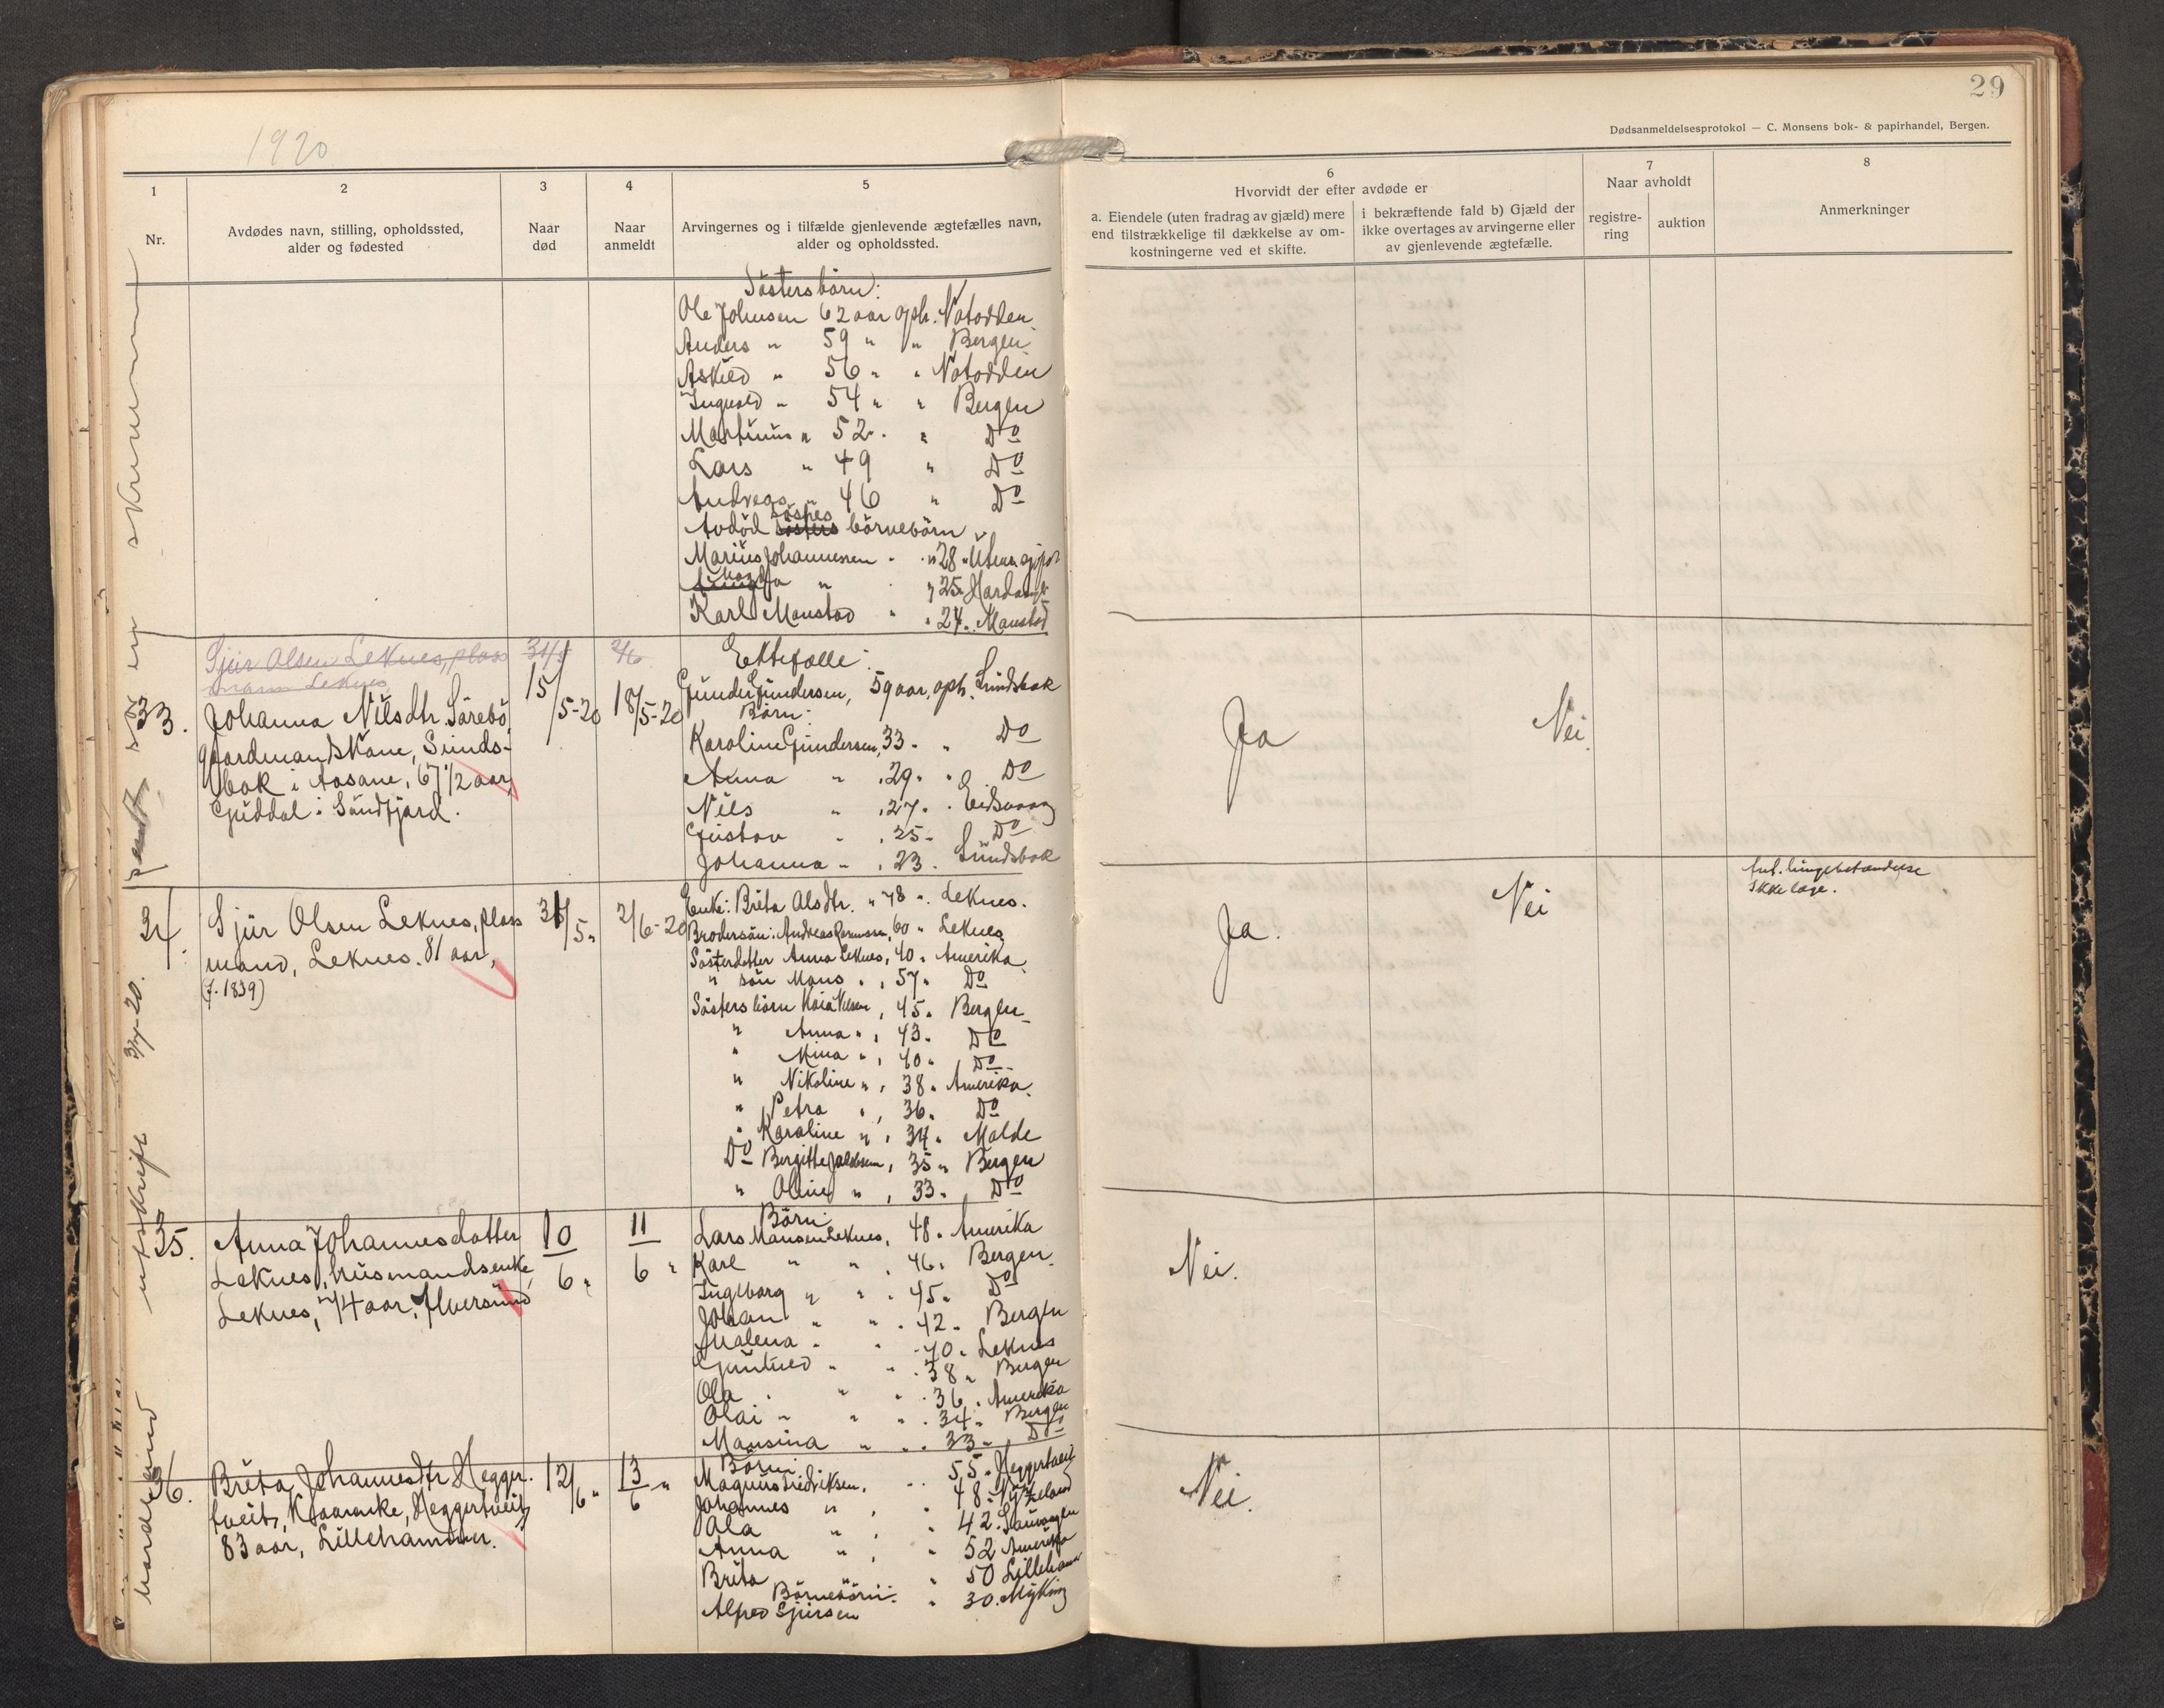 1920
29
Dødsanmeldelsesprotokol — C. Monsens bok- & papirhandel, Bergen.
1
Nr.
2
Avdødes navn, stilling, opholdssted,
alder og fødested
3
Naar
død
4
Naar
anmeldt
5
Arvingernes og i tilfælde gjenlevende ægtefælles navn,
alder og opholdssted.
6
Hvorvidt der efter avdøde er
a. Eiendele (uten fradrag av gjæld) mere
end tilstrækkelige til dækkelse av om-
kostningerne ved et skifte.
i bekræftende fald b) Gjæld der
ikke overtages av arvingerne eller
av gjenlevende ægtefælle.
7
Naar avholdt
registre-
ring
auktion
8
Anmerkninger
Søstersbörn:
Ole Johnsen 62 aar oph. Notodden
Anders " 59 " " Bergen
Askild " 56 " " Notodden
Ingvald " 54 " " Bergen
Martinus " 52 " " Do
Lars " 49 " Do
Andreas " 46 " Do
Avdöd söstes börnebörn
Marius Johannesen " " 28 "
" " 25 "
Karl Manstad " " 24 " Manstad
Sjur Olsen Leknes, plass
mann Leknes
31/5
2/6
33.
Johanna Nilsdtr. Sörebö
gaardmandskone, Sunds-
bak i Aasane, 67 1/2 aar,
Guddal i Söndfjord.
15/5-20
18/5-20
Ektefælle:
Gunder Gundersen, 59 aar, oph. Sundsbak
Börn:
Karoline Gundersen, 33 " " Do
Anna " , 29 " " Do
Nils " , 27 " " Eidsvaag
Gustav " , 25 " Do
Johanna " , 23 " Sundsbak
Ja
Nei
34.
Sjur Olsen Leknes, plass
mand, Leknes. 81 aar,
(f. 1839)
31/5 "
2/6-20
Enke: Brita Alsdtr. " 78 " . Leknes.
Brodersön: Andreas Rasmussen, 60 " Leknes
Sösterdatter Anna Leknes, 40 " Amerika
" sön Mons " , 57 " Do
Sösters börn Kaia Nilsen, 45 " Bergen
" Anna " , 43 " Do
" Mina " , 40 " Do
" Nikoline " , 38 " Amerika
" Petra " , 36 " Do
" Karoline " , 34 " Molde
Do Bergitte Jakobsen, 35 " Bergen
" Oline " , 33 " Do
Ja.
Nei
Anl. lungebetændelse
Ikke læge.
35.
Anna Johannesdatter
Leknes, husmandsenke
Leknes, 74 aar, Alversund
10/6 "
11/6 "
Börn:
Lars Mansen Leknes, 48 " Amerika
Karl " " , 46 " Bergen
Ingeborg " " . 45 " Do
Johan " " . 42 " Bergen
Malena " " 40 " Leknes
" " . 38 " Bergen
Ola " " . 36 " Amerika
Olai " " " . 34 " Bergen
Mansina " " . 33 " Do
Nei.
36.
Brita Johannesdtr Hegger-
tveit, Kaarenke, Heggertveit
83 aar, Lillehammer.
12/6 "
13/6 "
Börn:
Magnus Fredriksen, " 55 " Heggertveit
Johannes " , " 48 "
Ola " , " 42 . Sauvaagen
Anna " , " 52 Amerika
Brita " 50 Lilleham
Börnebörn:
Alfred Sjursen " 30 . Myking
Nei.
utskrift 3/7-20.